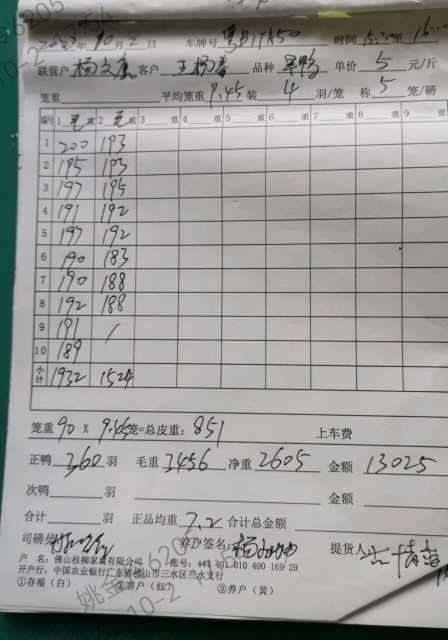 2023年10月2日 车牌号 时间 至
联营户 客户 品种 单价 5 元/斤
笼重 平均笼重 9.45 装 4 羽/笼 称 5 笼/磅
编号 1 毛 重 2 毛 重 3 重 4 重 5 重 6 重 7 重 8 重 9
1 200 193
2 195 193
3 197 195
4 191 192
5 197 192
6 190 183
7 190 188
8 192 188
9 191 /
10 189
小计 1932 1524
笼重 90 X 9.45 笼=总皮重: 851 上车费
正鸭 360 羽 毛重 3456 净重 2605 金额 13025
次鸭 羽 金额
合计 羽 正品均重 7.2 合计总金额
司磅员 养户签名: 提货人
户 名: 佛山桂柳家禽有限公司 账号: 401 010 400 169 29
开户行: 中国农业银行广东 佛山市三水区 水支行
①存根（白） ②客户（红） ③养户（黄）